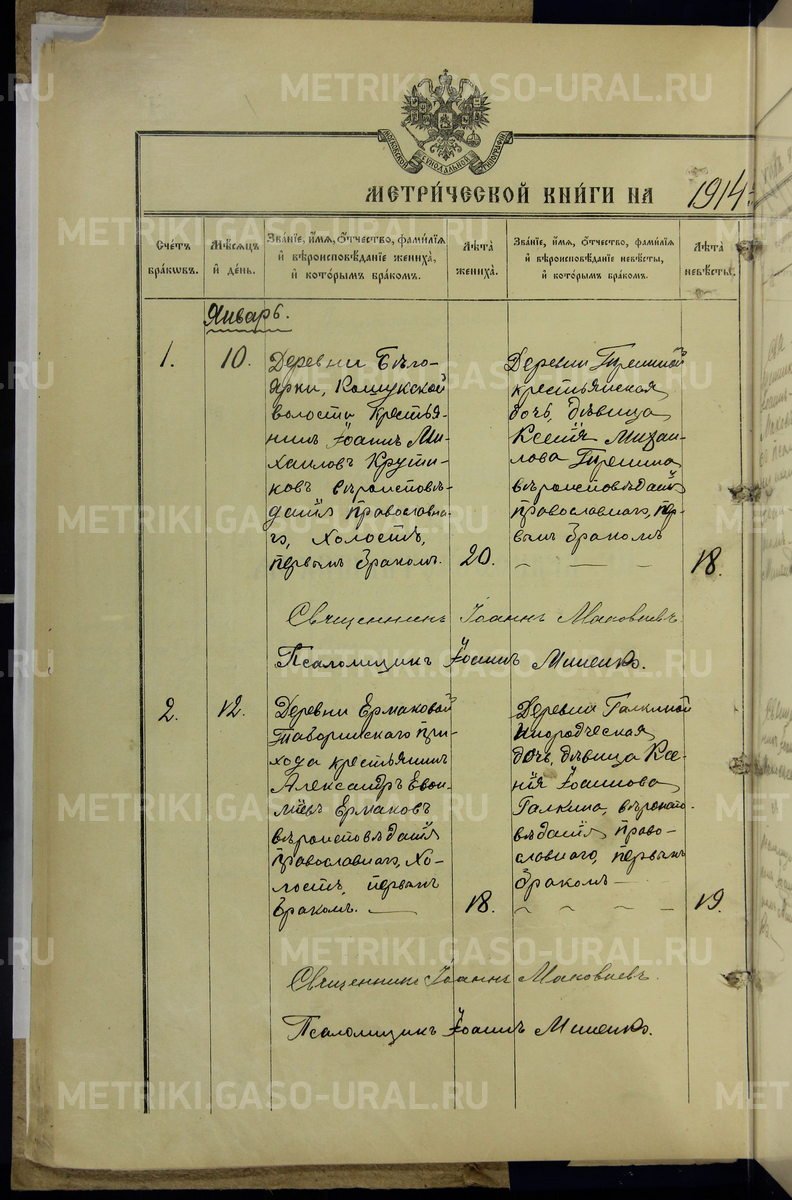 МОСКОВСКОЙ СѴНОДАЛЬНОЙ ТИПОГРАФІИ
МЕТРИ́ЧЕСКОЙ КНИ́ГИ НА 1914
Сче́тъ бра́кѡвъ.
Мѣ́сѧцъ и҆ де́нь.
Зва́нїе, и҆́мѧ, ѻ҆́тчество, фами́лїѧ и҆ вѣроисповѣ́данїе жениха̀, и҆ кото́рымъ бра́комъ.
Лѣ́та жениха̀.
Зва́нїе, и҆́мѧ, ѻ҆́тчество, фами́лїѧ и҆ вѣроисповѣ́данїе невѣ́сты, и҆ кото́рымъ бра́комъ.
Лѣ́та невѣ́сты.
Январь.
1.
10.
Деревни Бѣло-
ярки, Кошукской
волости крестья-
нинъ Іоаннъ Ми-
хаиловъ Крути-
ковъ вѣроисповѣ-
данія православна-
го, холостъ,
первымъ бракомъ.
20.
Деревни
крестьянская
дочь, дѣвица
Ксенія Михаи-
лова
вѣроисповѣданія
православнаго, пер-
вымъ бракомъ
18.
Священникъ Іоаннъ Маковѣевъ.
Псаломщикъ Іоаннъ Миненко.
2.
12.
Деревни Ермаковой
Таборинскаго при-
хода крестьянинъ
Александръ Евои-
міевъ Ермаковъ
вѣроисповѣданія
православнаго, хо-
лостъ, первымъ
бракомъ.
18.
Деревни Галкиной
Инородческая
дочь, дѣвица Ксе-
нія Іоаннова
Галкина, вѣроиспо-
вѣданія право-
славнаго, первымъ
бракомъ
19.
Священникъ Іоаннъ Маковѣевъ.
Псаломщикъ Іоаннъ Миненко.
METRIKI.GASO-URAL.RU